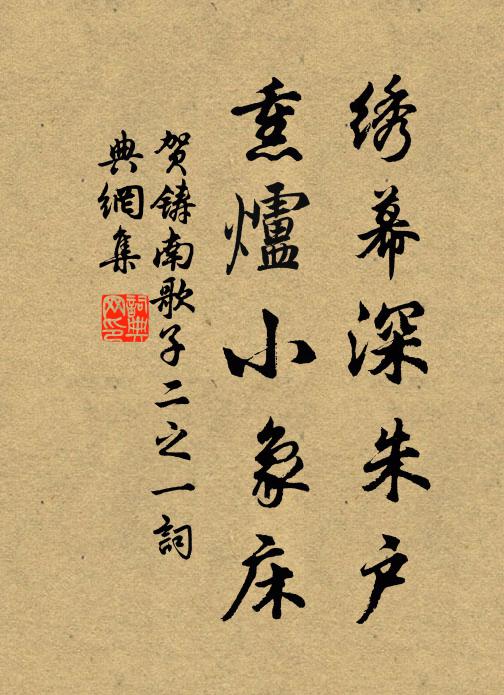 绣幕深朱户
熏爐小象床
贺鑄南歌子二之一詞
典網集
詞典网印